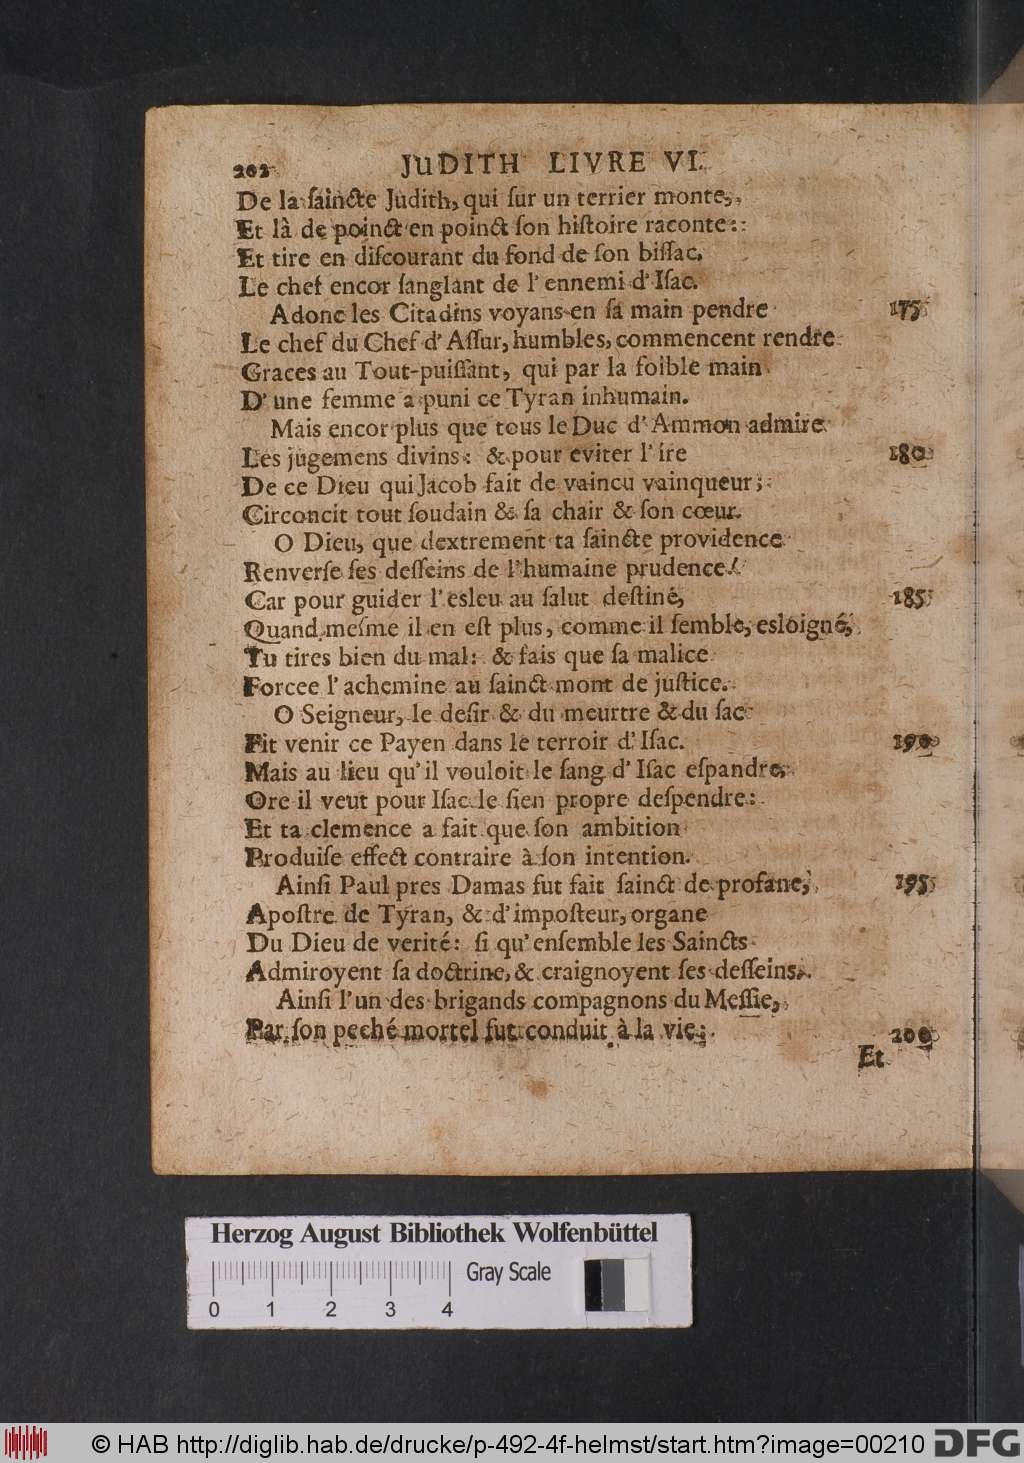 202 JUDITH LIVRE VI.
De la ſaincte Judith, qui ſur un terrier monte,
Et là de poinct en poinct ſon hiſtoire raconte:
Et tire en diſcourant du fond de ſon biſſac,
Le chef encor ſanglant de l'ennemi d'Iſac.
Adonc les Citadins voyans en ſa main pendre 175
Le chef du Chef d'Aſſur, humbles, commencent rendre
Graces au Tout-puiſſant, qui par la foible main
D'une femme a puni ce Tyran inhumain.
Mais encor plus que tous le Duc d'Ammon admire
Les jugemens divins: & pour eviter l'ire 180
De ce Dieu qui Jacob fait de vaincu vainqueur;
Circoncit tout ſoudain & ſa chair & ſon cœur.
O Dieu, que dextrement ta ſaincte providence
Renverſe ſes deſſeins de l'humaine prudence!
Car pour guider l'esleu au ſalut deſtiné, 185
Quand meſme il en eſt plus, comme il ſemble, esloigné,
Tu tires bien du mal: & fais que ſa malice
Forcee l'achemine au ſainct mont de juſtice.
O Seigneur, le deſir & du meurtre & du ſac
Fit venir ce Payen dans le terroir d'Iſac. 190
Mais au lieu qu'il vouloit le ſang d'Iſac eſpandre,
Ore il veut pour Iſac le ſien propre deſpendre:
Et ta clemence a fait que ſon ambition
Produiſe effect contraire à ſon intention.
Ainſi Paul pres Damas fut fait ſainct de profane, 195
Apoſtre de Tyran, & d'impoſteur, organe
Du Dieu de verité: ſi qu'enſemble les Saincts
Admiroyent ſa doctrine, & craignoyent ſes deſſeins.
Ainſi l'un des brigands compagnons du Meſſie,
Par ſon peché mortel fut conduit à la vie: 200
Et
Herzog August Bibliothek Wolfenbüttel
Gray Scale
0 1 2 3 4
© HAB http://diglib.hab.de/drucke/p-492-4f-helmst/start.htm?image=00210 DFG